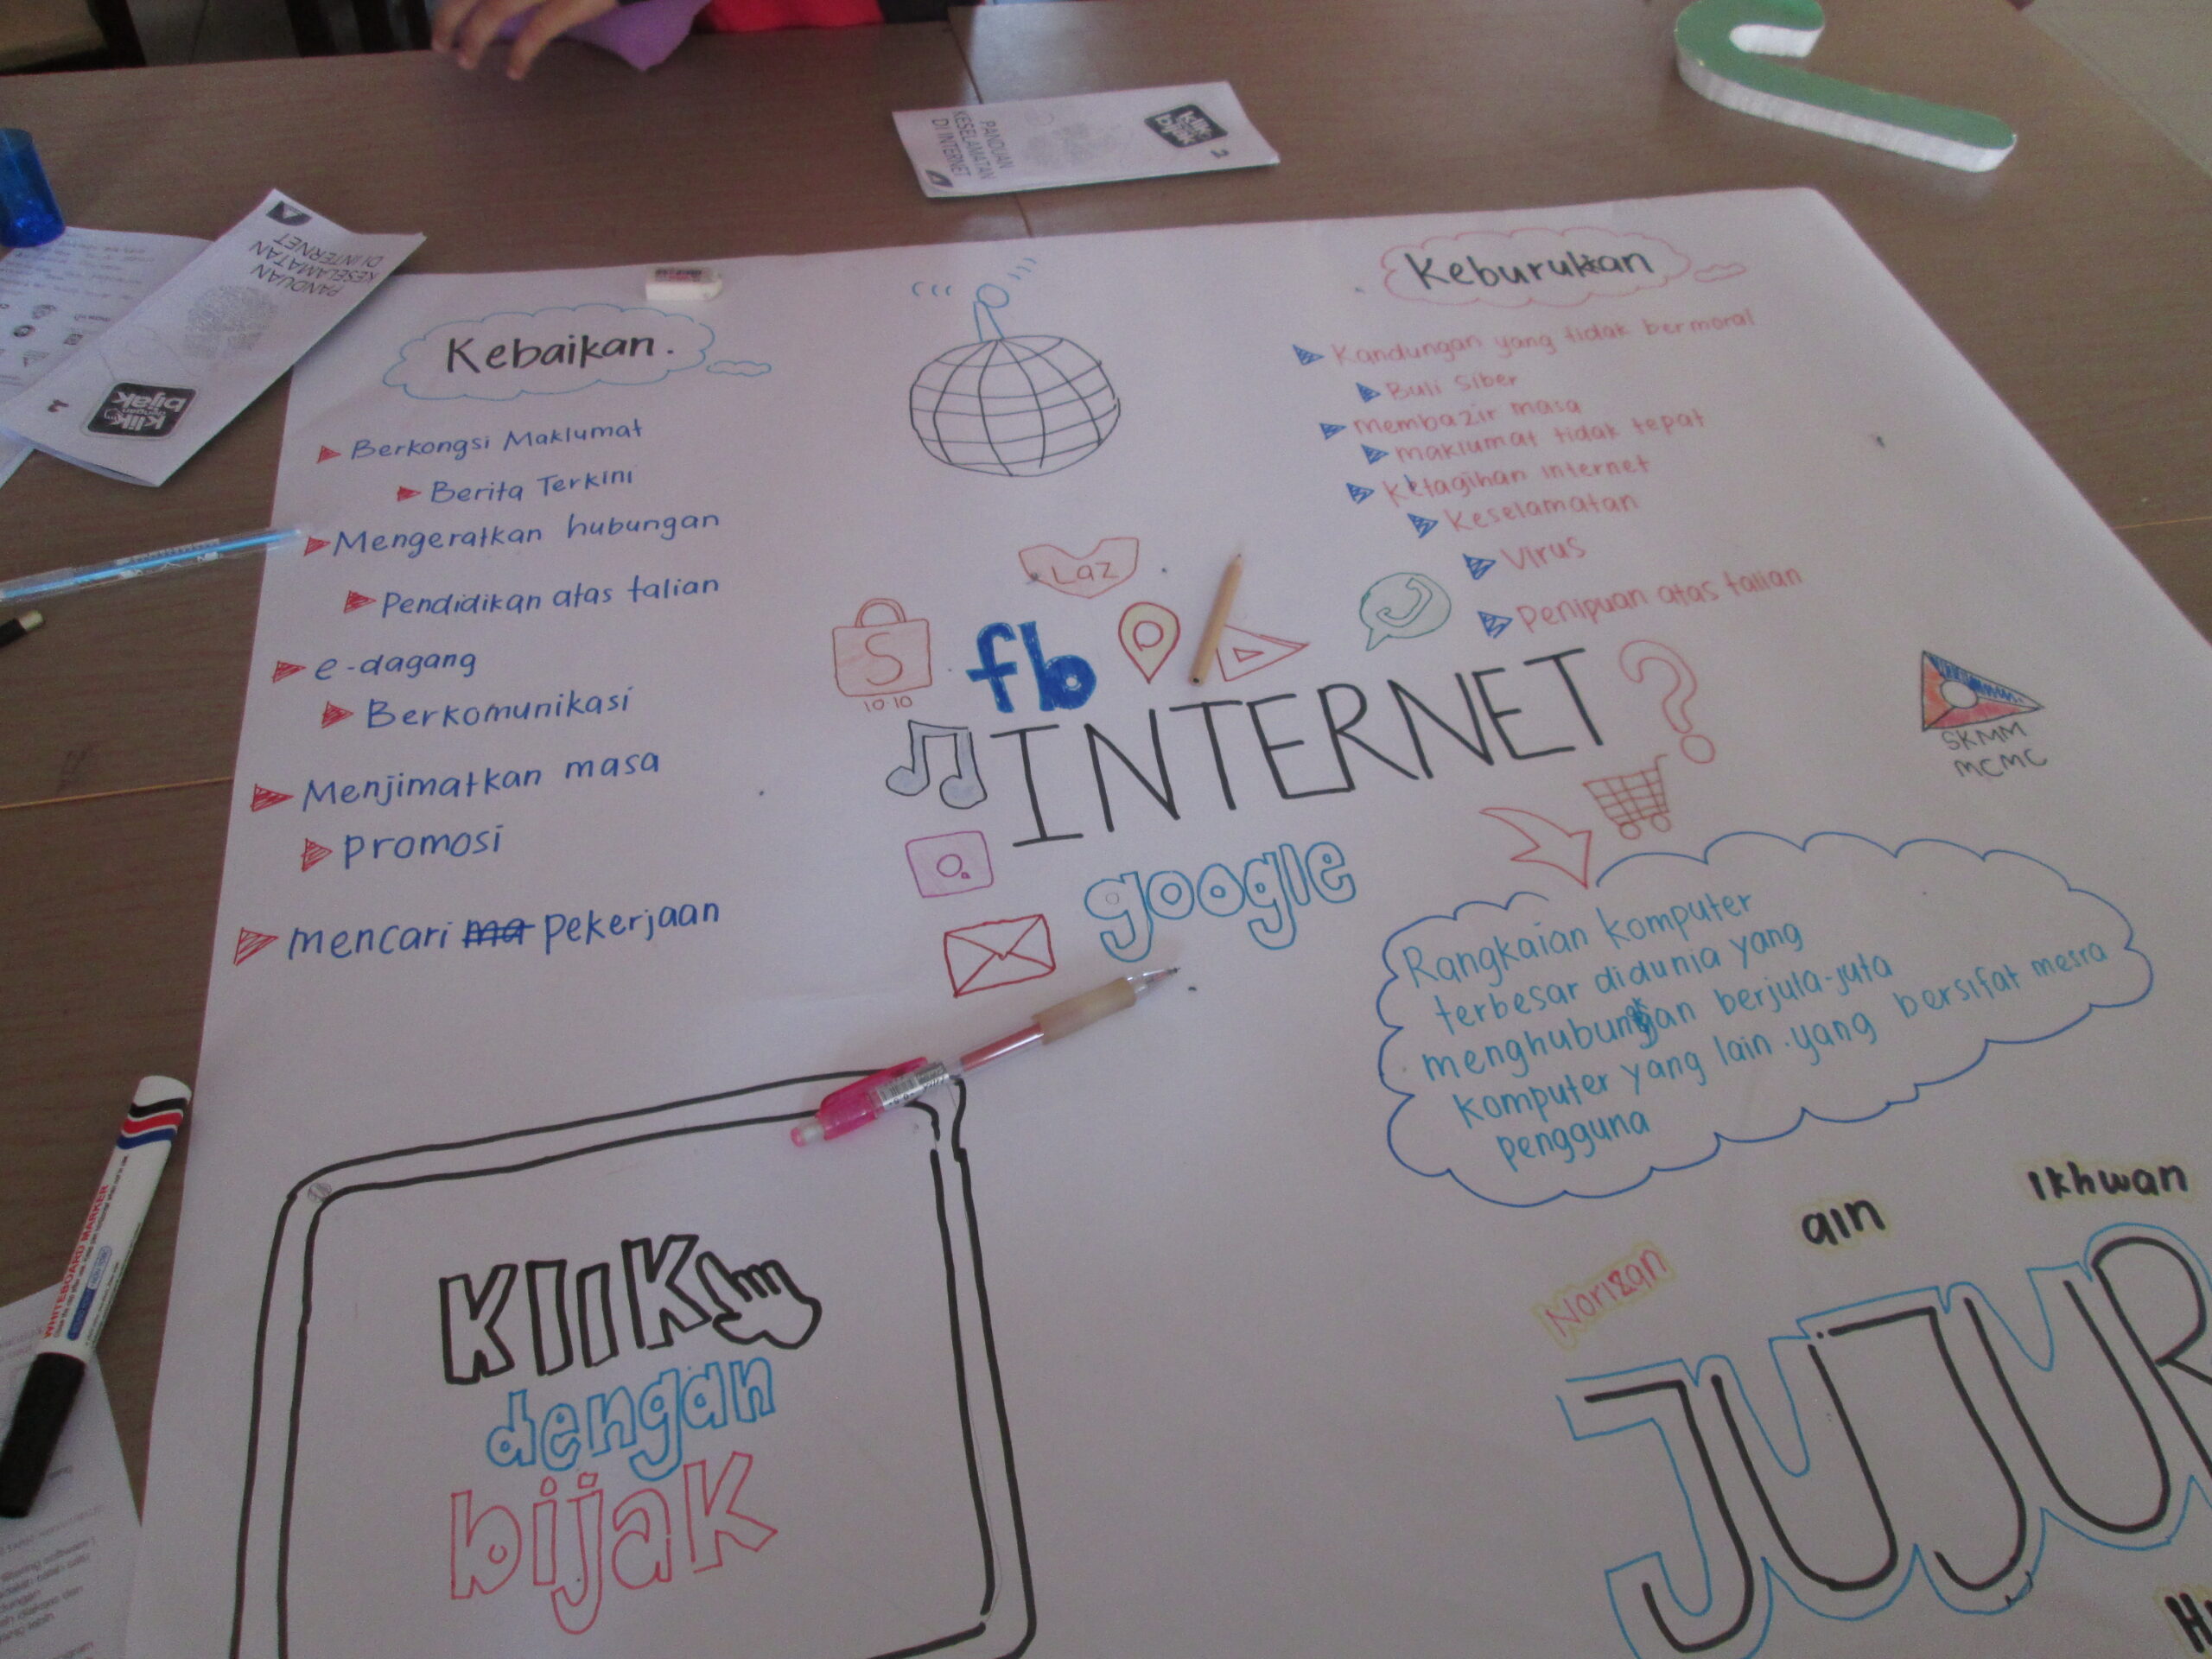 PANDUAN
KESELAMATAN
DI INTERNET
klik
dengan
bijak
2
PANDUAN
KESELAMATAN
DI INTERNET
klik
dengan
bijak
2
Kebaikan.
Berkongsi Maklumat
Berita Terkini
Mengeratkan hubungan
Pendidikan atas talian
e-dagang
Berkomunikasi
Menjimatkan masa
promosi
mencari ma pekerjaan
Keburukan
Kandungan yang tidak bermoral
Buli Siber
membazir masa
maklumat tidak tepat
Ketagihan internet
Keselamatan
Virus
Penipuan atas talian
Laz
S
10 10
fb
INTERNET?
google
SKMM
MCMC
Rangkaian komputer
terbesar didunia yang
menghubungan berjuta-juta
komputer yang lain.yang bersifat mesra
pengguna
KliK
dengan
bijak
Norizan
ain
Ikhwan
JUJUR
WHITEBOARD MARKER